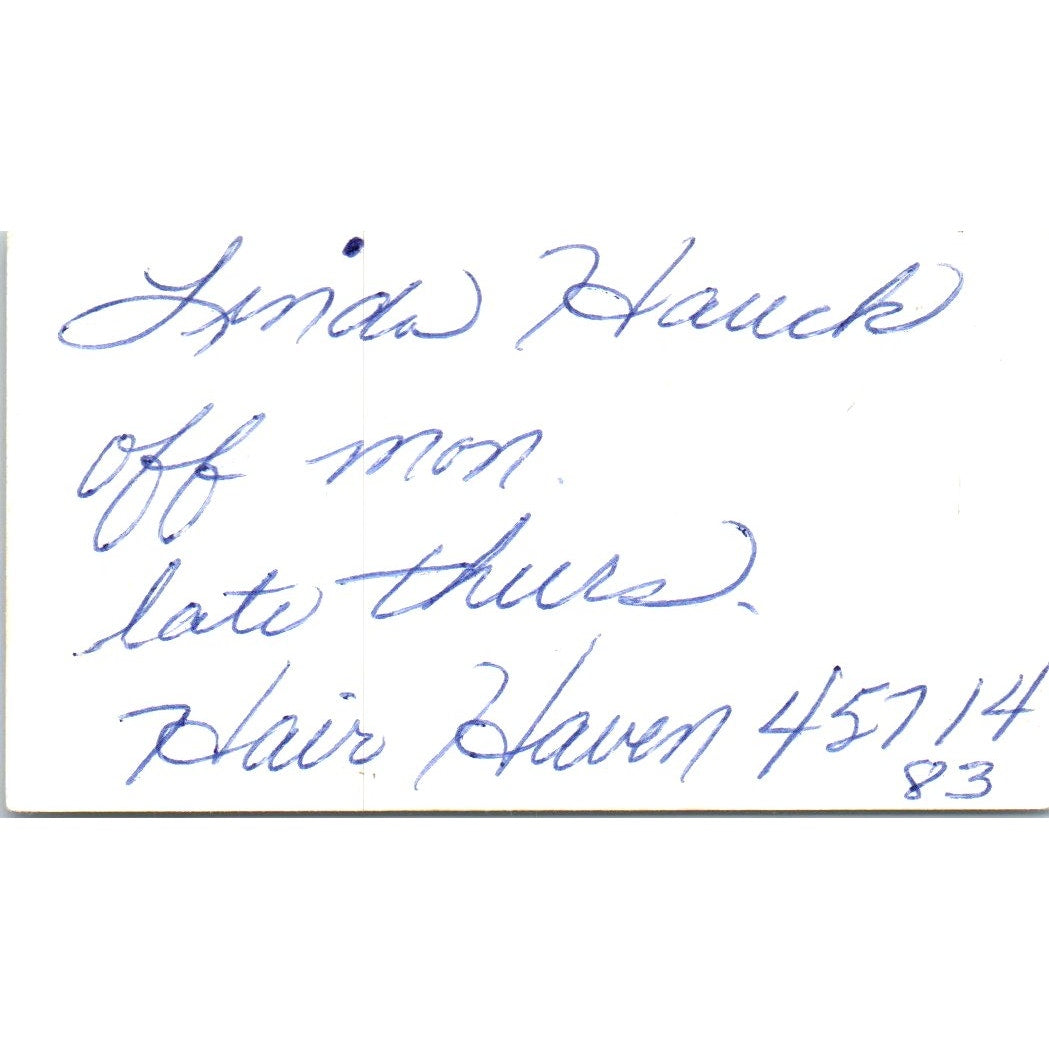 Linda Hauck
off mon.
late thurs.
Hair Haven 45714
83